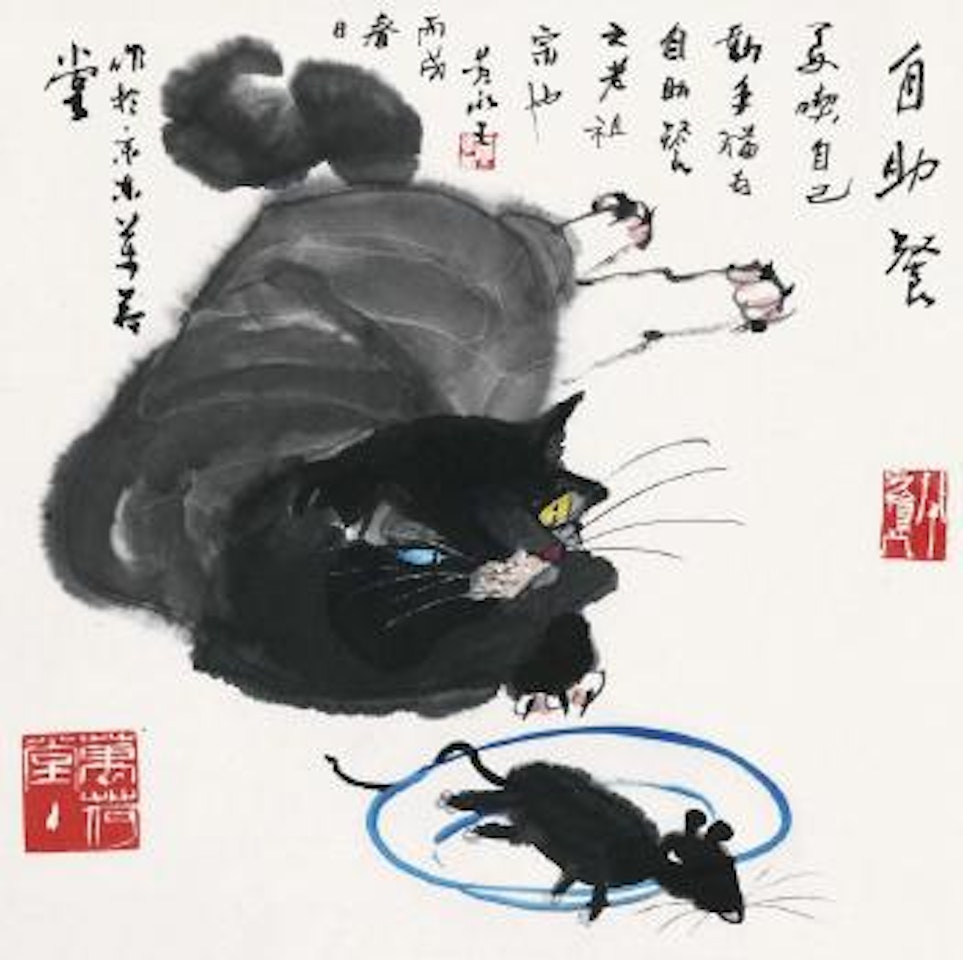 自助餐
要吃自己
動手猫为
自助餐
之老祖
宗也
黄永玉
丙戌
春
日
作於京东萬荷
堂
萬荷堂